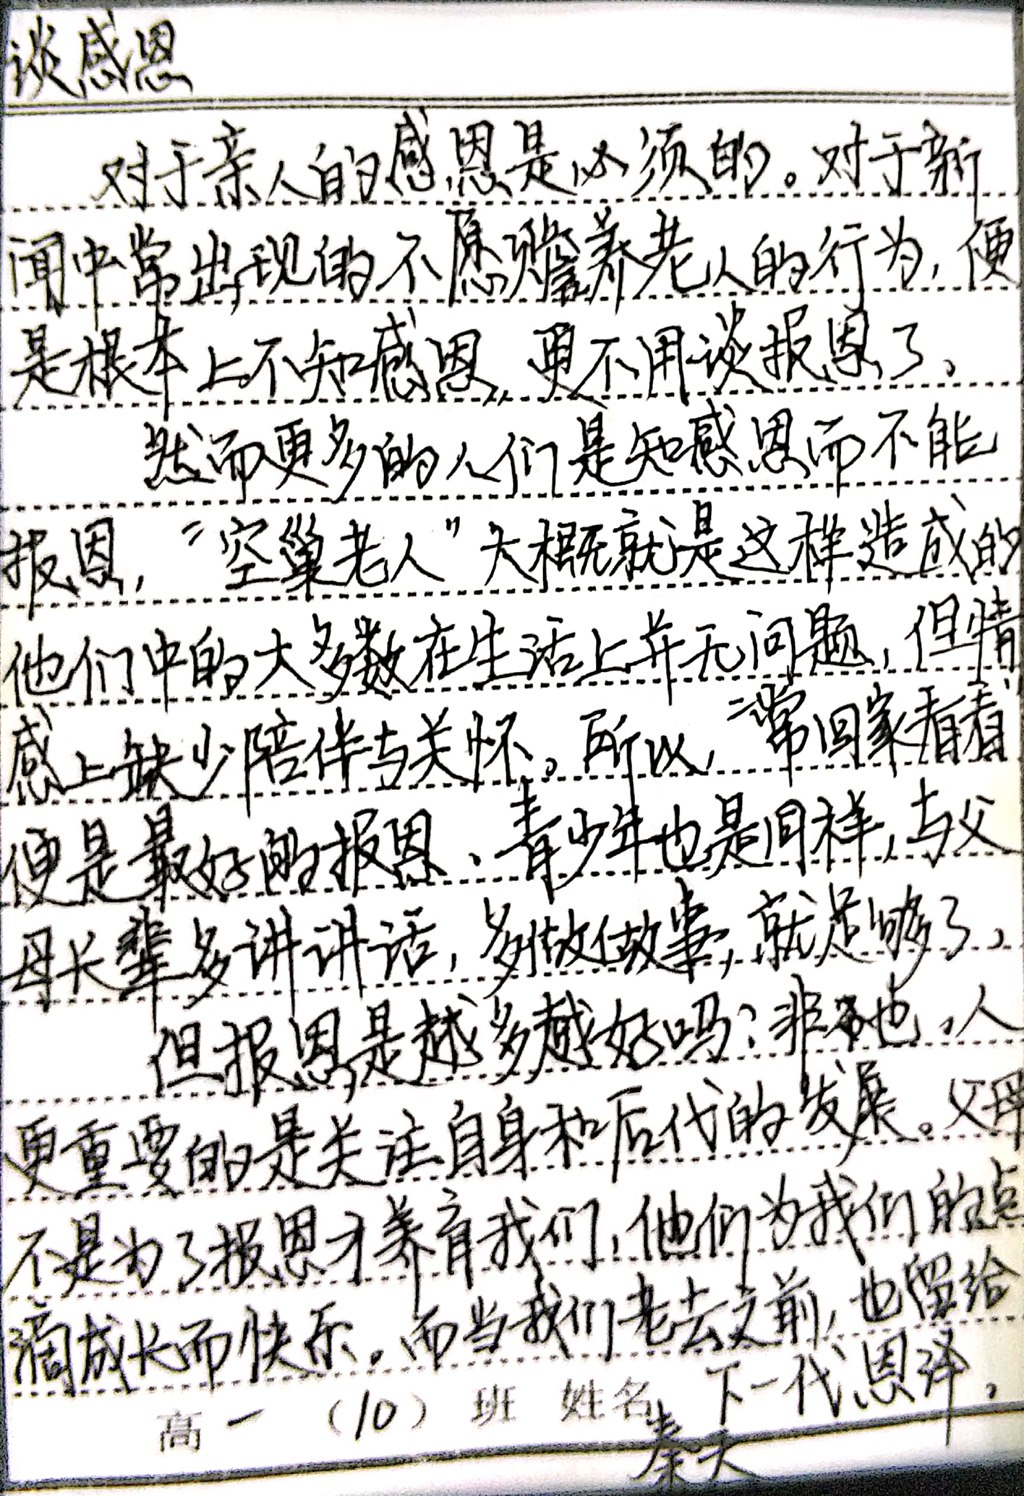 谈感恩
对于亲人的感恩是必须的。对于新
闻中常出现的不愿赡养老人的行为，便
是根本上不知感恩，更不用谈报恩了、
然而更多的人们是知感恩而不能
报恩，“空巢老人”大概就是这样造成的
他们中的大多数在生活上并无问题，但情
感上缺少陪伴与关怀。所以，“常回家看看
便是最好的报恩、青少年也是同样，与父
母长辈多讲讲话，多做做故事，就足够了、
但报恩是越多越好吗？非也，人
更重要的是关注自身和后代的发展。父母
不是为了报恩才养育我们，他们为我们的点
滴成长而快乐。而当我们老去之前，也留给
下一代恩泽，
高一（10）班 姓名 秦天